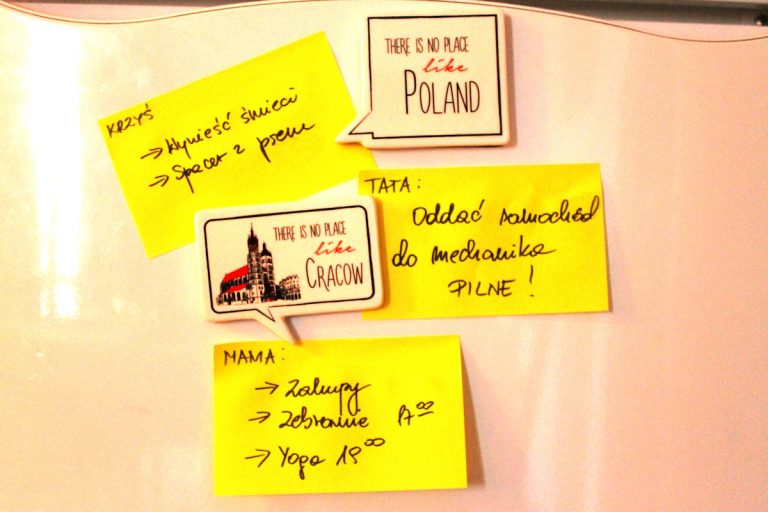 THERE IS NO PLACE
like
POLAND
KRZYŚ
→ Wynieść śmieci
→ Spacer z psem
TATA:
Oddać samochód
do mechanika
PILNE!
THERE IS NO PLACE
like
CRACOW
MAMA:
→ Zakupy
→ Zebranie 17⁰⁰
→ Yoga 19⁰⁰